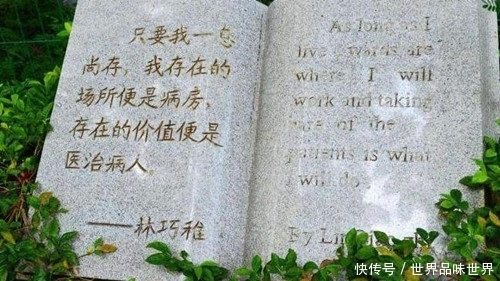 只要我一息
尚存，我存在的
场所便是病房，
存在的价值便是
医治病人。
——林巧稚
As long as I
live wards are
where I will
work and taking
care of the
patients is what
I will do
By Lin
快传号/世界品味世界